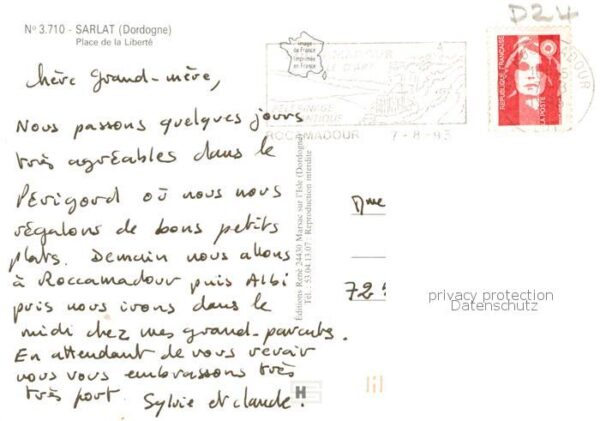 Nº 3.710 - SARLAT (Dordogne)
Place de la Liberté
D24
image de France imprimée en France
RÉPUBLIQUE FRANÇAISE
LA POSTE
ROCAMADOUR 7-8-93
chère Grand-mère,
Nous passons quelques jours
très agréables dans le
Périgord où nous nous
régalons de bons petits
plats. Demain nous allons
à Roccamadour puis Albi
puis nous irons dans le
midi chez mes grand-parents.
En attendant de vous revoir
nous vous embrassons très
très fort. Sylvie et claude.
Éditions René 24430 Marsac sur l'Isle (Dordogne)
Tél.: 53.04.13.07 - Reproduction interdite
Dme
72
privacy protection
Datenschutz
H